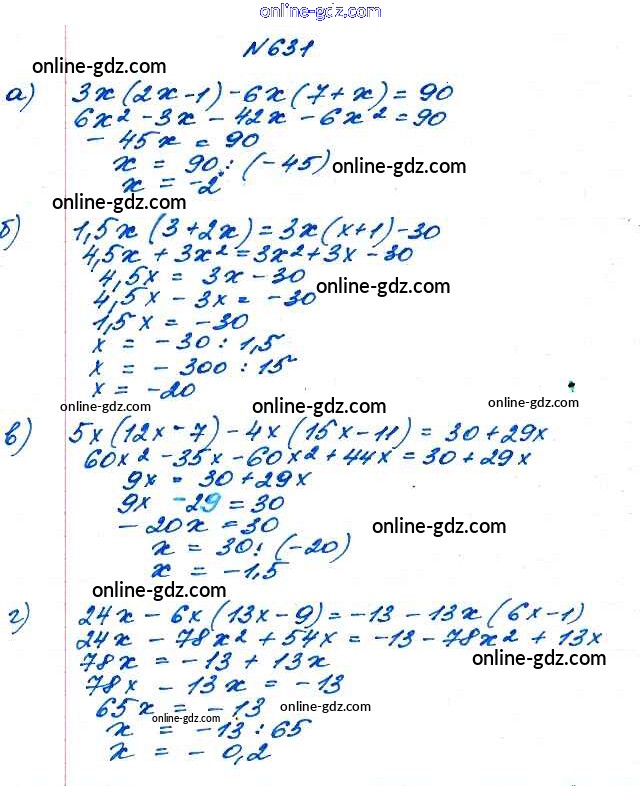 online-gdz.com
N 631
online-gdz.com
а) 3x(2x-1)-6x(7+x)=90
6x²-3x-42x-6x²=90
-45x=90
x = 90:(-45) online-gdz.com
x = -2
online-gdz.com
б) 1,5x(3+2x)=3x(x+1)-30
4,5x+3x²=3x²+3x-30
4,5x = 3x-30
online-gdz.com
4,5x-3x=-30
1,5x=-30
x = -30:1,5
x = -300:15
x = -20
online-gdz.com online-gdz.com online-gdz.com
в) 5x(12x-7)-4x(15x-11)=30+29x
60x²-35x-60x²+44x=30+29x
9x = 30+29x
9x -29=30
-20x=30 online-gdz.com
x = 30:(-20)
x = -1,5
online-gdz.com
г) 24x-6x(13x-9)=-13-13x(6x-1)
24x-78x²+54x=-13-78x²+13x
78x=-13+13x online-gdz.com
78x-13x=-13
65x=-13 online-gdz.com
online-gdz.com
x = -13:65
x = -0,2